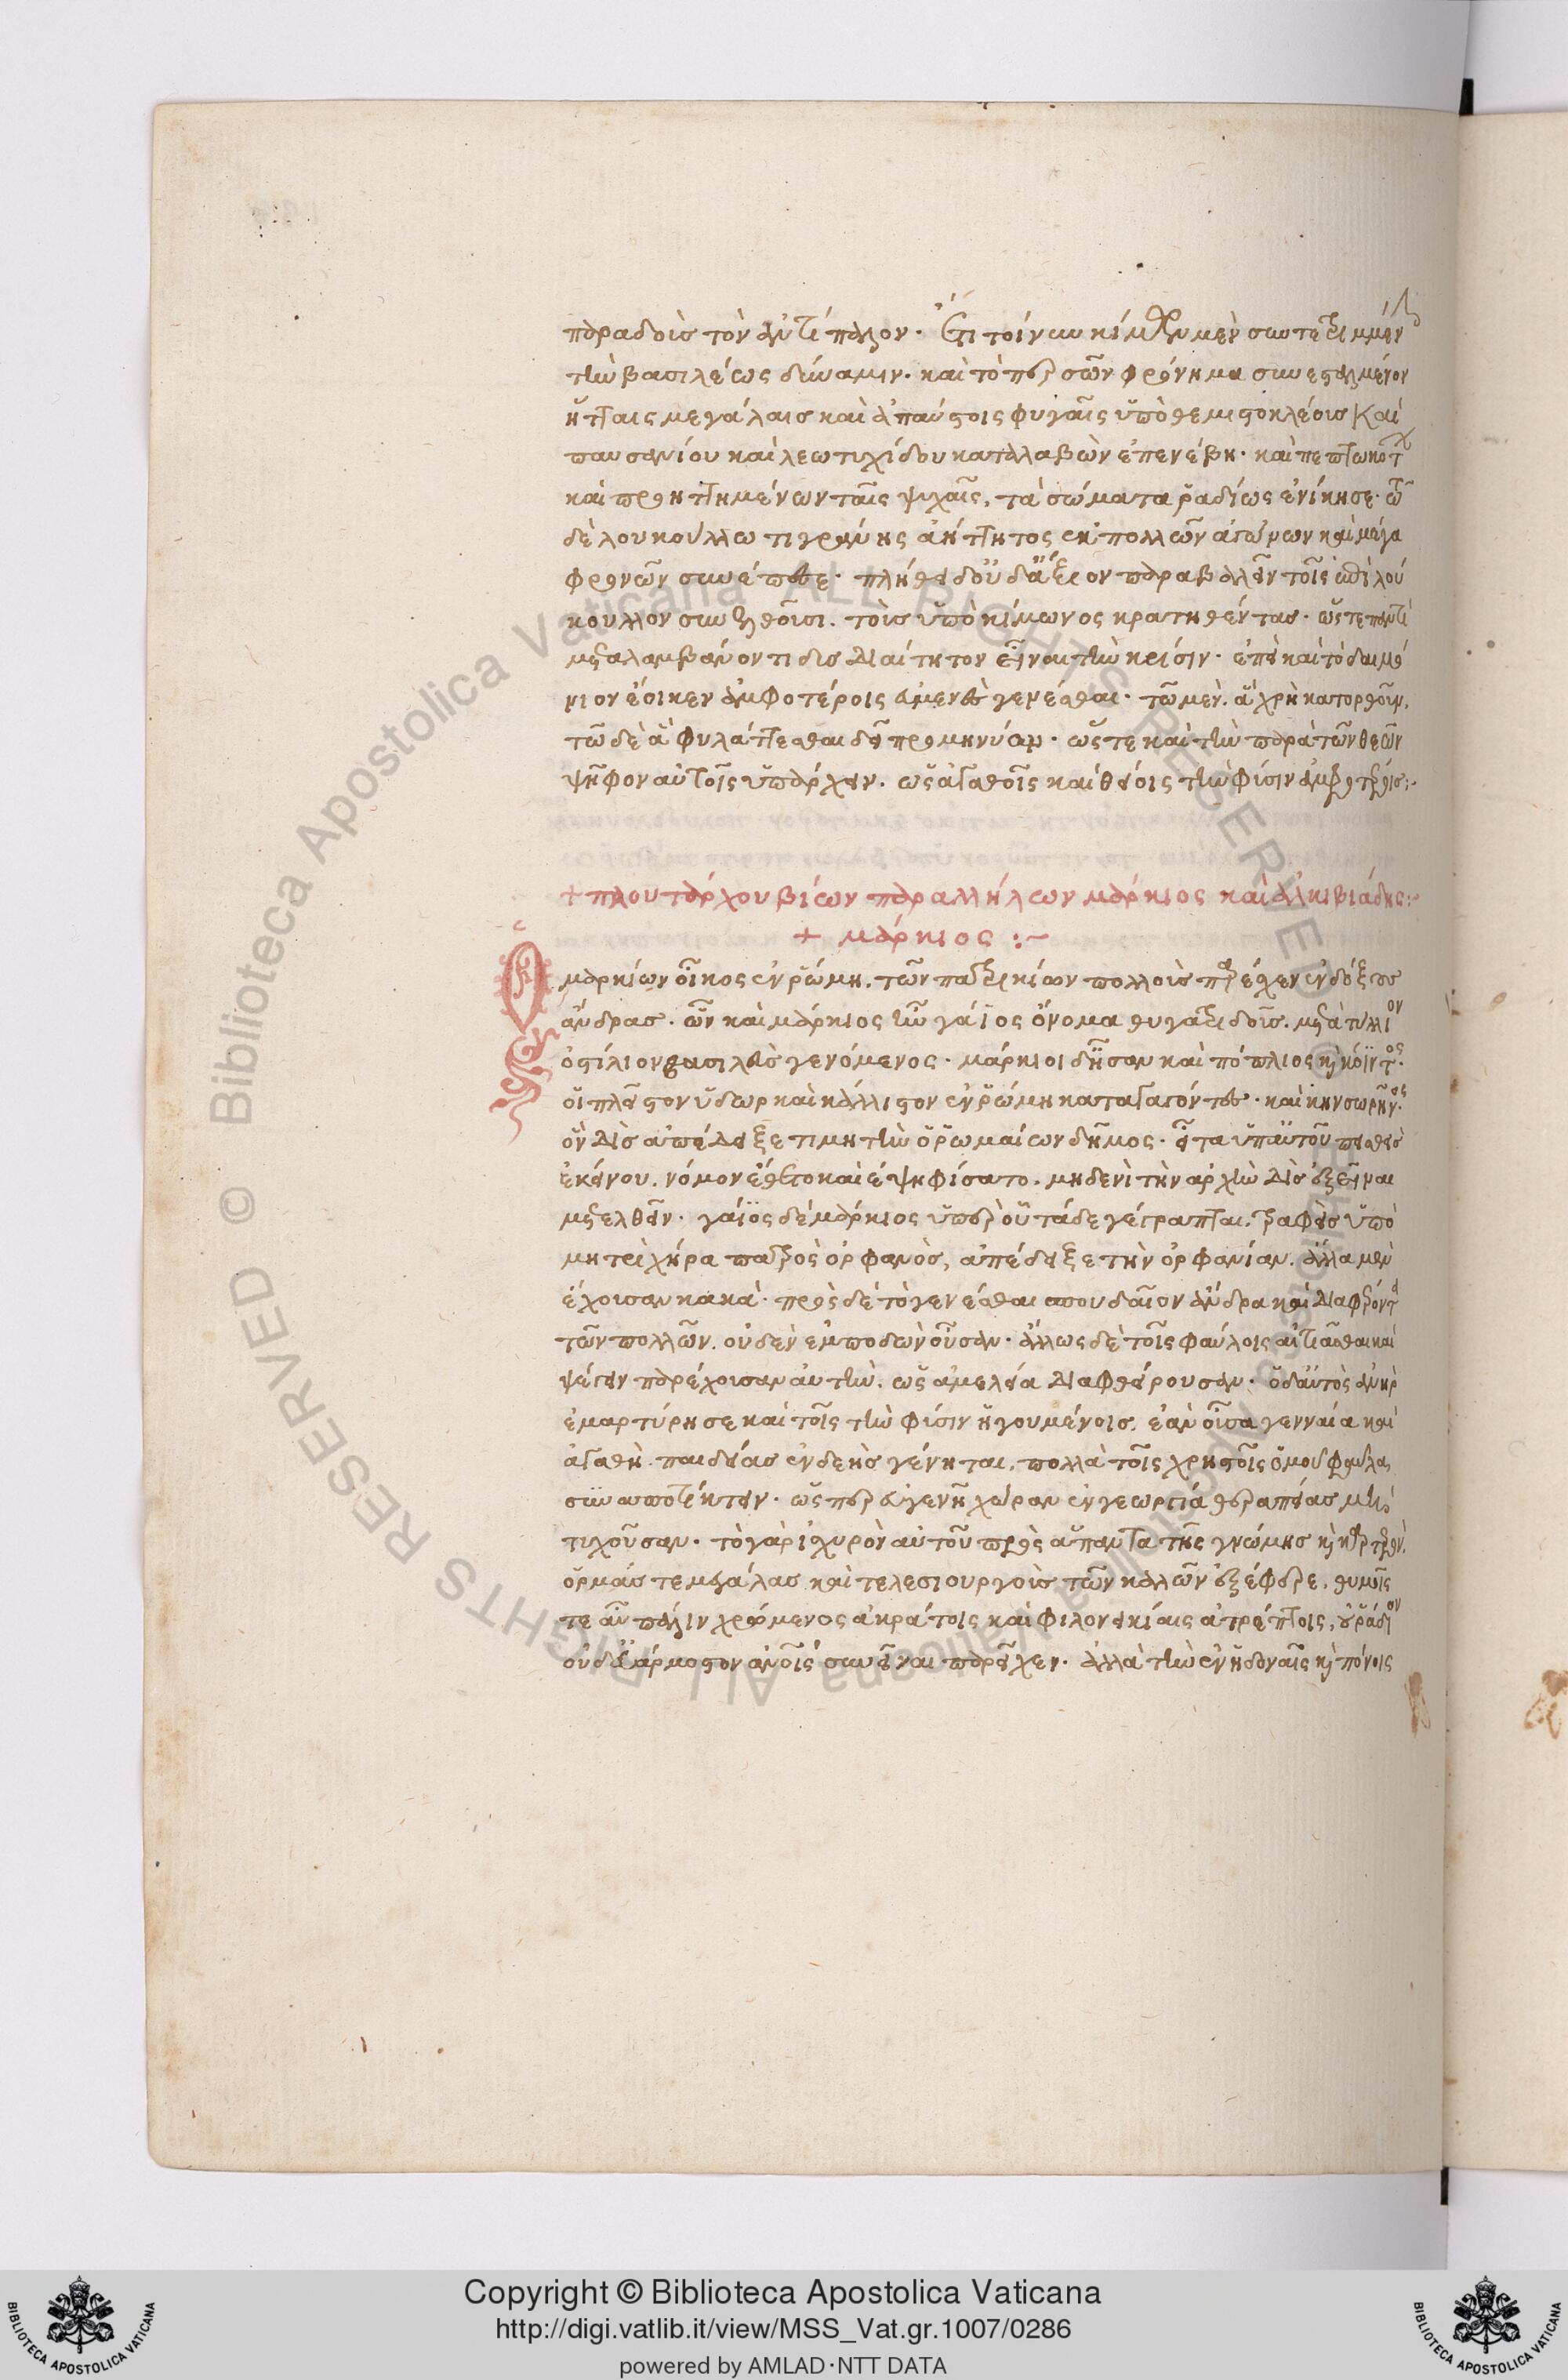 παραδοὺς τὸν ἀντίπαλον. Ἔτι τοίνυν κίμων μὲν συντετριμμένην
τὴν βασιλέως δύναμιν. καὶ τὸ περσῶν φρόνημα συνεσταλμένον
ἥτταις μεγάλαις καὶ ἀπαύστοις φυγαῖς ὑπὸ θεμιστοκλέους καὶ
παυσανίου καὶ λεωτυχίδου καταλαβὼν ἐπενέβη. καὶ πεπτωκότων
καὶ προηττημένων ταῖς ψυχαῖς, τὰ σώματα ῥαδίως ἐνίκησε.
δὲ λουκούλλω τιγράνης ἀήττητος ἐκ πολλῶν ἀγώνων καὶ μέγα
φρονῶν συνέπεσε. πλήθει δ' οὐδ' ἄξιον παραβαλεῖν τοῖς ἐπὶ λού
κουλλον συνελθοῦσι. τοὺς ὑπὸ κίμωνος κρατηθέντας. ὥστε παντὶ
μεταλαμβάνοντι δυσδιαίτητον εἶναι τὴν κρίσιν. ἐπεὶ καὶ τὸ δαιμό
νιον ἔοικεν ἀμφοτέροις εὐμενὲς γενέσθαι. τῶ μὲν. ἃ χρὴ κατορθοῦν.
τῶ δὲ ἃ φυλάττεσθαι δεῖ προμηνύον. ὥστε καὶ τὴν παρὰ τῶν θεῶν
ψῆφον αὐτοῖς ὑπάρχειν. ὡς ἀγαθοῖς καὶ θείοις τὴν φύσιν ἀμφοτέροις:
+ πλουτάρχου βίων παραλλήλων μάρκιος καὶ ἀλκιβιάδης:
+ μάρκιος :~
Ὁ μαρκίων οἶκος ἐν ῥώμη. τῶν πατρικίων πολλοὺς παρέσχεν ἐνδόξους
ἄνδρας. ὧν καὶ μάρκιος ἦν γάϊος ὄνομα θυγατριδοῦς. μετὰ τύλλιον
ὁστίλιον βασιλεὺς γενόμενος. μάρκιοι δ' ἦσαν καὶ πόπλιος καὶ κόϊντος.
οἱ πλεῖστον ὕδωρ καὶ κάλλιστον ἐν ῥώμη καταγαγόντες. καὶ κηνσωρῖνος.
ὃν δὶς ἀπέδειξε τιμητὴν ὁ ῥωμαίων δῆμος. εἶτα ὑπ' αὐτοῦ πεισθεὶς
ἐκείνου. νόμον ἔθετο καὶ ἐψηφίσατο. μηδενὶ τὴν ἀρχὴν δὶς ἐξεῖναι
μετελθεῖν. γάϊος δὲ μάρκιος ὑπὲρ οὗ τάδε γέγραπται. τραφεὶς ὑπὸ
μητρὶ χήρα πατρὸς ὀρφανὸς, ἀπέδειξε τὴν ὀρφανίαν. ἄλλα μὲν
ἔχουσαν κακὰ. πρὸς δὲ τὸ γενέσθαι σπουδαῖον ἄνδρα καὶ διαφέροντα
τῶν πολλῶν. οὐδὲν ἐμποδὼν οὖσαν. ἄλλως δὲ τοῖς φαύλοις αἰτιᾶσθαι καὶ
ψέγειν παρέχουσαν αὐτὴν. ὡς ἀμελεία διαφθείρουσαν. ὁ δ' αὐτὸς ἀνὴρ
ἐμαρτύρησε καὶ τοῖς τὴν φύσιν ἡγουμένοις. ἐὰν οὖσα γενναία καὶ
ἀγαθὴ. παιδείας ἐνδεὴς γένηται, πολλὰ τοῖς χρηστοῖς ὁμοῦ φαῦλα
συναποτίκτειν. ὥσπερ εὐγενῆ χώραν ἐν γεωργία θεραπείας μὴ
τυχοῦσαν. τὸ γὰρ ἰσχυρὸν αὐτοῦ πρὸς ἅπαντα τῆς γνώμης καὶ καρτερὸν.
ὁρμάς τε μεγάλας καὶ τελεσιουργοὺς τῶν καλῶν ἐξέφερε, θυμοῖς
τε αὖ πάλιν χρώμενος ἀκράτοις καὶ φιλονεικίαις ἀτρέπτοις, οὐ ῥάδιον
οὐδ' εὐάρμοστον ἀνοις συνεῖναι παρεῖχεν. ἀλλὰ τὴν ἐν ἡδοναῖς καὶ πόνοις
Copyright © Biblioteca Apostolica Vaticana
http://digi.vatlib.it/view/MSS_Vat.gr.1007/0286
powered by AMLAD·NTT DATA